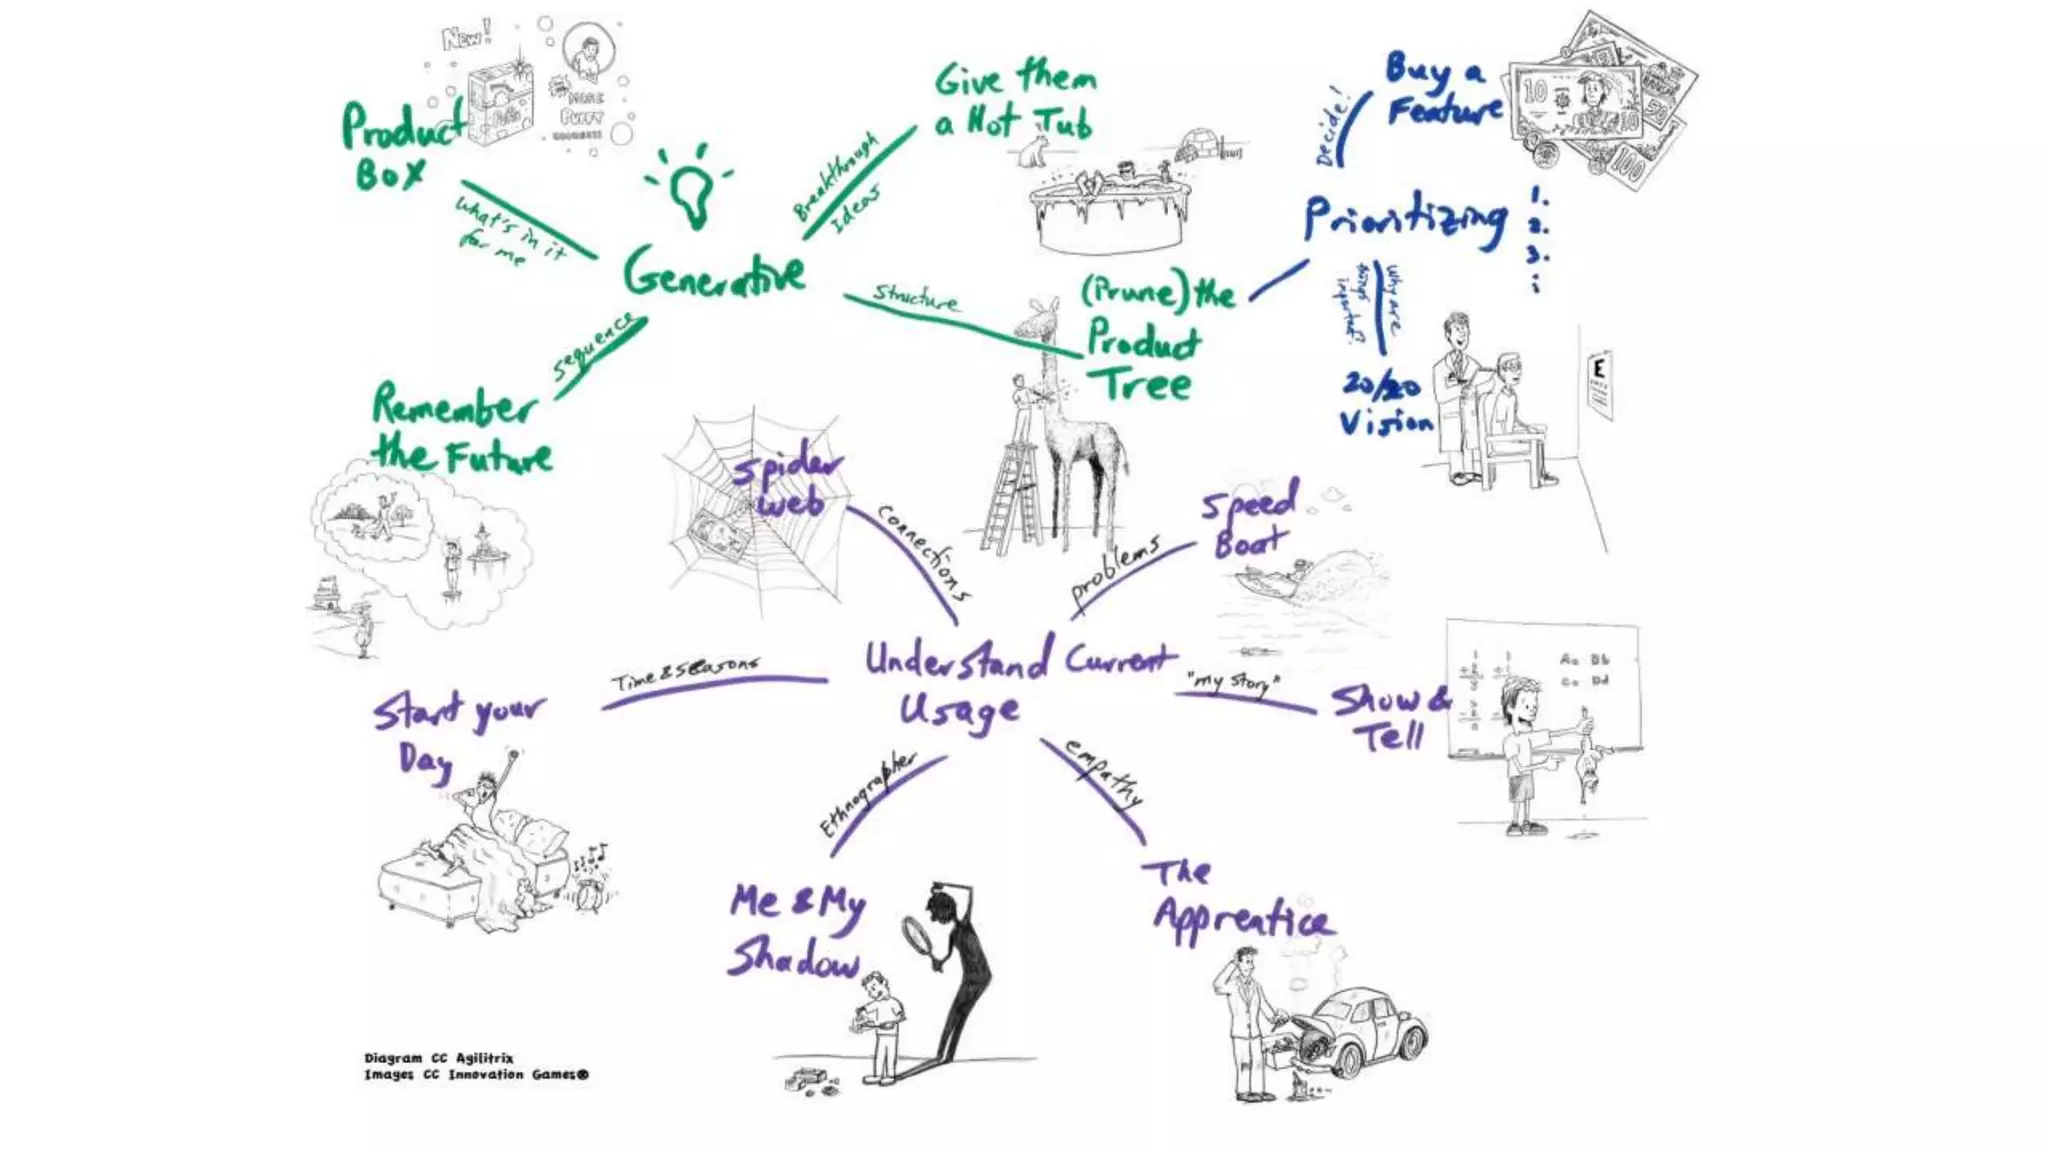 New!
MORE
PUFFY
Product
Box
What's in it
for me
Generative
Breakthrough
Ideas
Give them
a Hot Tub
Structure
(Prune) the
Product
Tree
sequence
Remember
the Future
Decide!
Buy a
Feature
10
10
50
100
Prioritizing
1.
2.
3.
Why are
20/20
Vision
E
Spider
web
connections
problems
Speed
Boat
Understand Current
Usage
Time & Seasons
Start your
Day
"my story"
Show &
Tell
Aa Bb
Cc Dd
Ethnographer
Me & My
Shadow
empathy
The
Apprentice
Diagram CC Agilitrix
Images CC Innovation Games®